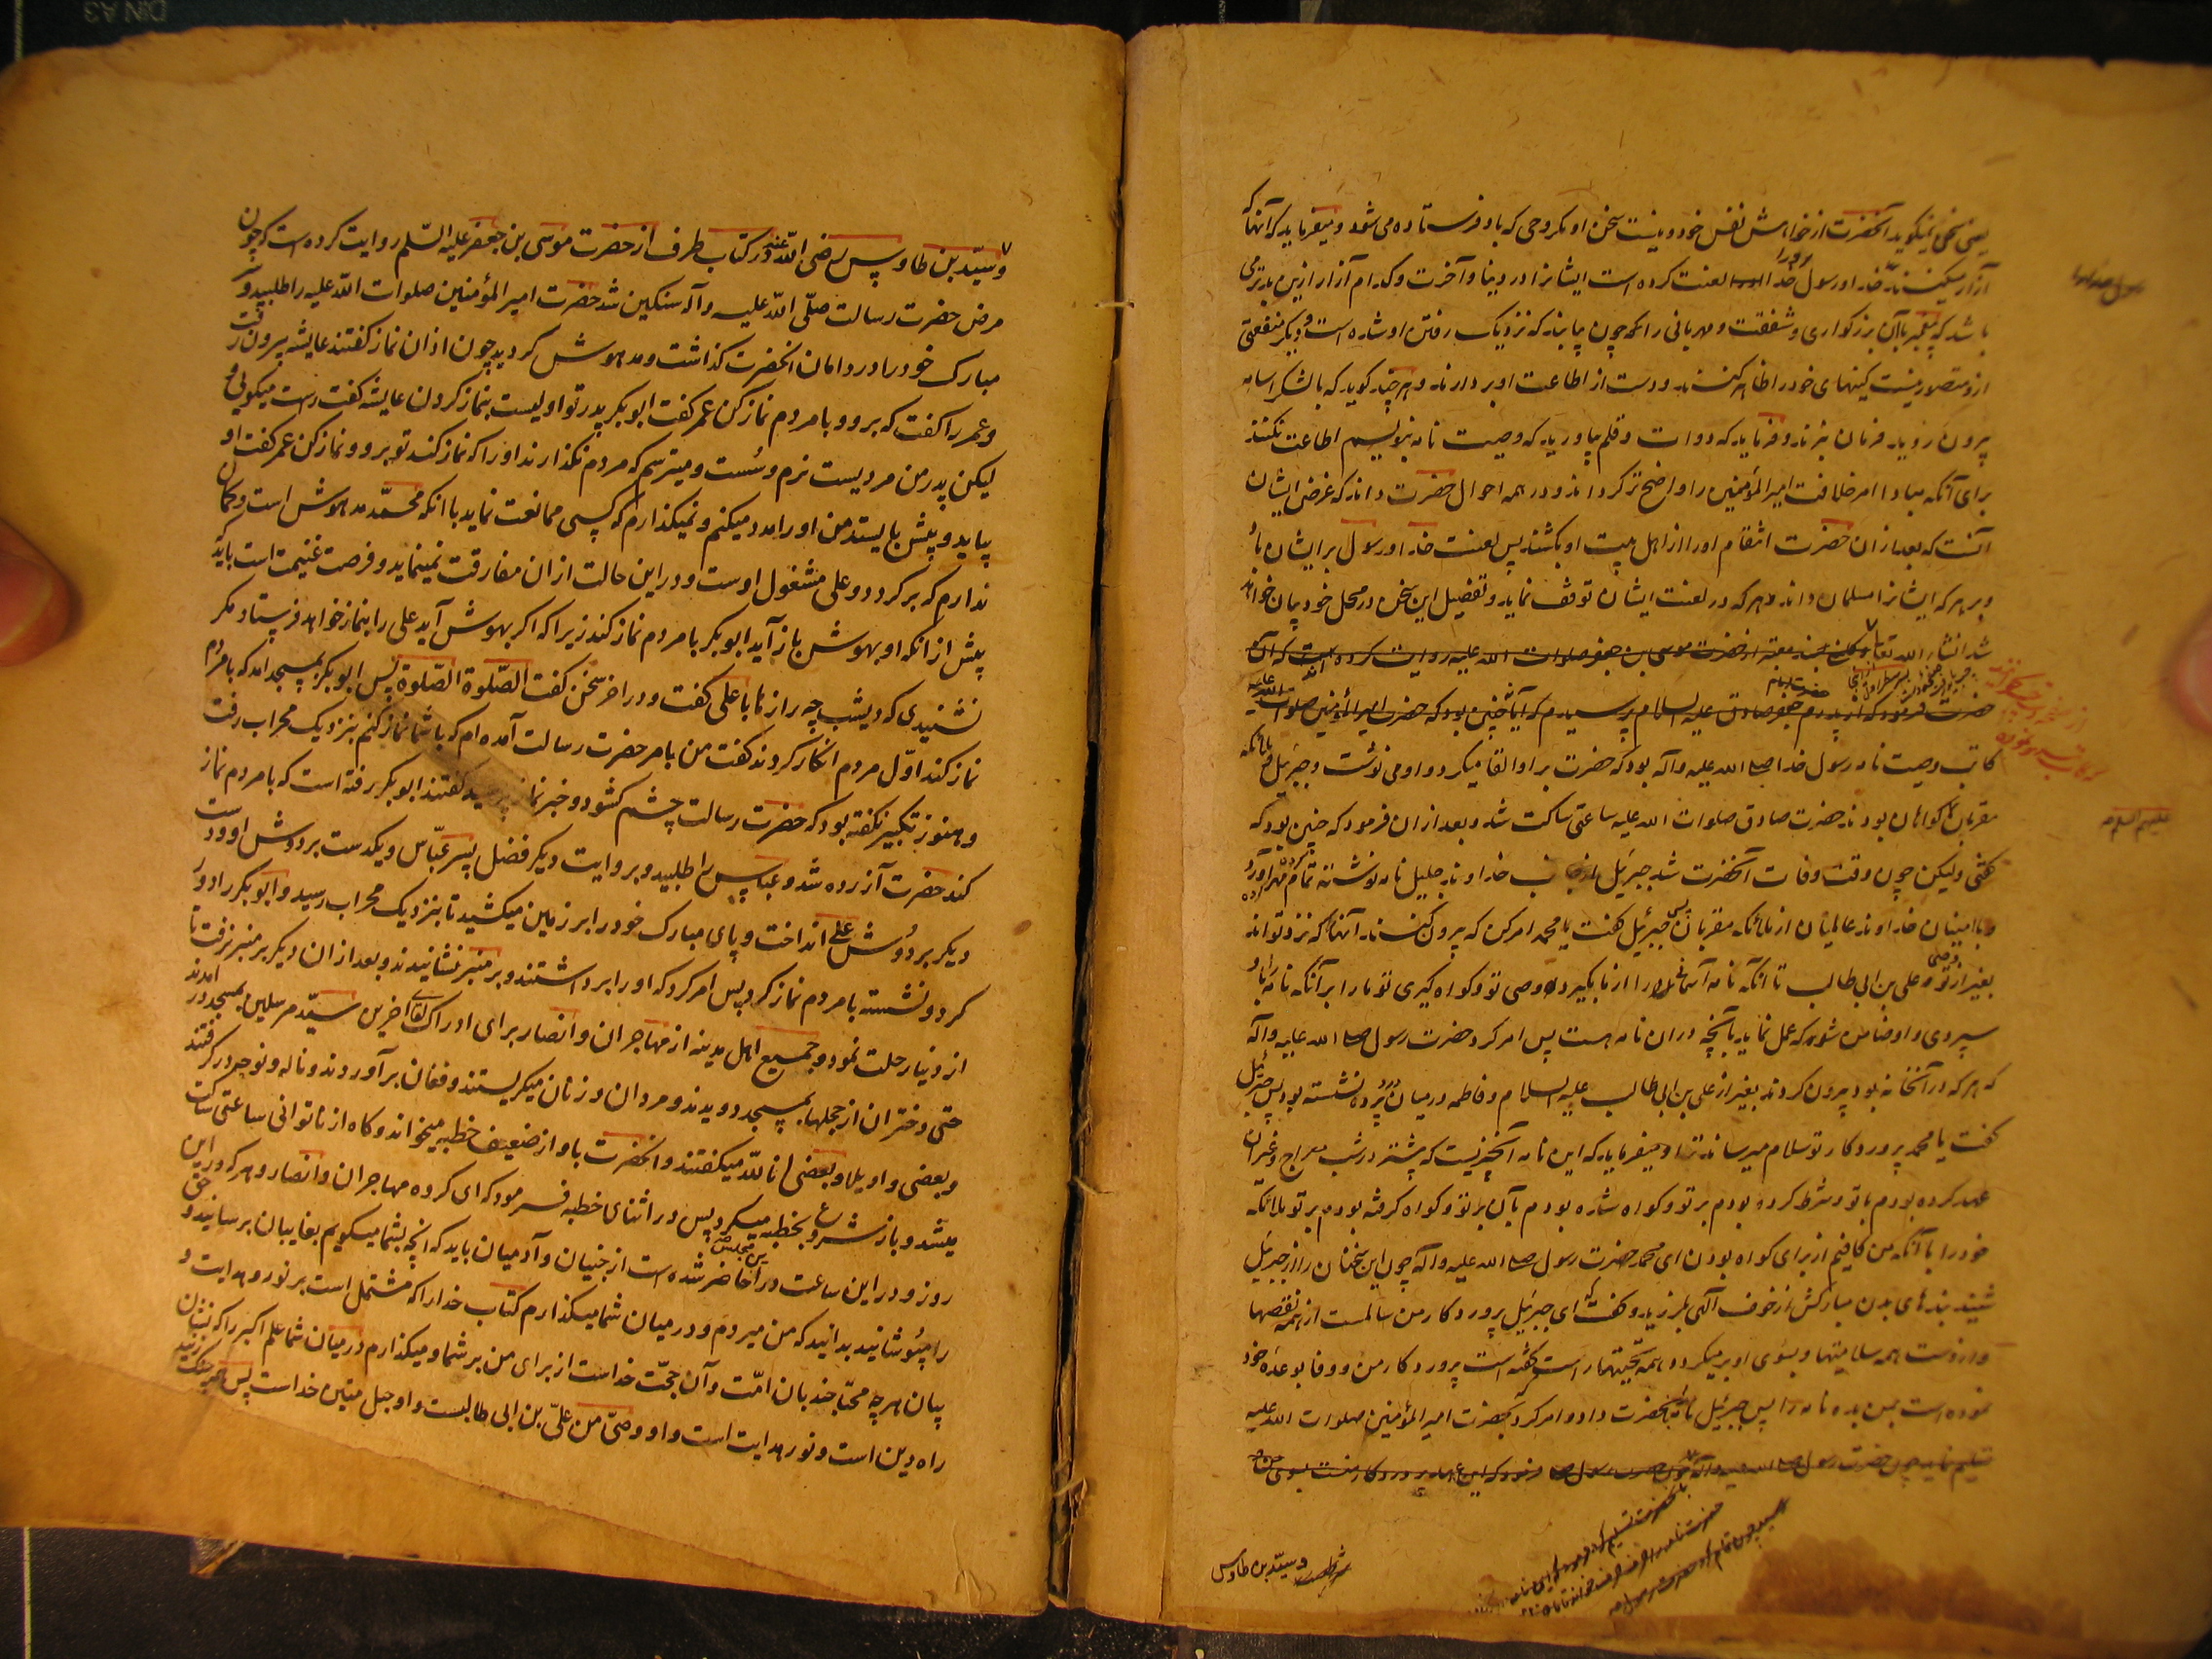 یعنی نمی‌گوید آنحضرت از خواهش نفس خود و نیست سخن او مکر وحی که باو فرستاده می شود و میفرماید که آنها که
آزار میکنند خدا و رسول خدا را لعنت کرده است ایشانرا در دنیا و آخرت و کدام آزار ازین بدتر می
باشد که پیغمبر بآن بزرکواری و شفقت و مهربانی را که چون یابند که نزدیک رفتن او شده است و دیکر منفعتی
ازو متصور نیست کینهای خود را ظاهر کنند و دست از اطاعت او بردارند و هر چند کوید که با لشکر اسامه
بیرون روید فرمان نبرند و فرماید که دوات و قلم بیاورید که وصیت نامه بنویسم اطاعت نکنند
برای آنکه مبادا امر خلافت امیر المؤمنین را واضح تر کرداند و در همه احوال حضرت داند که غرض ایشان
آنست که بعد از ان حضرت انتقام او را از اهل بیت او بکشند پس لعنت خدا و رسول بر ایشان باد
و بر هر که ایشانرا مسلمان داند و هر که در لعنت ایشان توقف نماید و تفصیل این سخن در محل خود بیان خواهد
شد انشاء الله تعالی و کلینی بسند معتبر از حضرت موسی بن جعفر صلوات الله علیه روایت کرده است که آن
حضرت فرمود که از پدرم جعفر صادق علیه السلام پرسیدم که آیا چنین بود که حضرت امیر المؤمنین صلوات الله علیه
کاتب وصیت نامه رسول خدا صلی الله علیه و آله بود که حضرت بر او القا میکرد و او می نوشت و جبرئیل و ملائکه
مقربان کواهان بودند حضرت صادق صلوات الله علیه ساعتی ساکت شد و بعد از ان فرمود که چنین بود که
کفتی ولیکن چون وقت وفات آنحضرت شد جبرئیل از جانب خداوند جلیل نامه نوشته تمام مهر کرده آورد
با امینان خداوند عالمیان از ملائکه مقربان پس جبرئیل کفت یا محمد امر کن که بیرون کنند آنها که نزد تواند
بغیر از تو و علی بن ابی طالب تا آنکه نامه آسمانی را از ما بکیرد وصی تو و کواه کیری تو ما را بر آنکه نامه را باو
سپردی و او ضامن شود که عمل نماید بآنچه در ان نامه هست پس امر کرد حضرت رسول صلی الله علیه و آله
که هر که در آنخانه بود بیرون کردند بغیر از علی بن ابی طالب علیه السلام و فاطمه در میان در و پرده نشسته بود پس جبرئیل
کفت یا محمد پروردکار تو سلام میرساند ترا و میفرماید که این نامه آنچیزیست که پیشتر در شب معراج و غیر آن
عهد کرده بودم با تو و شرط کرده بودم بر تو و کواه شده بودم بآن بر تو و کواه کرفته بودم بر تو ملائکه
خود را با آنکه من کافیم از برای کواه بودن ای محمد حضرت رسول صلی الله علیه و آله چون این سخنان را از جبرئیل
شنید بندهای بدن مبارکش از خوف الهی بلرزید و کفت که ای جبرئیل پروردکار من سالمست از همه نقصها
و ازوست همه سلامتیها و بسوی او بر میکردد همه تحیتها راست کفته است پروردکار من و وفا بوعده خود
نموده است بمن بده نامه را پس جبرئیل نامه را بآنحضرت داد و امر کرد بحضرت امیر المؤمنین صلوات الله علیه
تسلیم نماید چون حضرت رسول صلی الله علیه و آله فرمود که این عهد پروردکار منست بسوی من
و سید بن طاوس
و سیّد بن طاوس رضی اللّه عنه در کتاب طرف از حضرت موسی بن جعفر علیه السّلم روایت کرده است که چون
مرض حضرت رسالت صلّی اللّه علیه و آله سنکین شد حضرت امیر المؤمنین صلوات اللّه علیه را طلبید و سر
مبارک خود را در دامان انحضرت کذاشت و مدهوش کردید چون اذان نماز کفتند عایشه بیرون رفت
و عمر را کفت که برو و با مردم نماز کن عمر کفت ابو بکر پدر تو اولیست بنماز کردن عایشه کفت راست میکوئی و
لیکن پدر من مردیست نرم و سُست و میترسم که مردم نکذارند او را که نماز کند تو برو و نماز کن عمر کفت او
بیاید و پیش بایستد من او را مدد میکنم و نمیکذارم که کسی ممانعت نماید با انکه محمّد مدهوش است و کمان
ندارم که بر کردد و علی مشغول اوست و در این حالت از ان مفارقت نمینماید و فرصت غنیمت است باید که
پیش از انکه او بهوش باز آید ابو بکر با مردم نماز کند زیرا که اکر بهوش آید علی را بنماز خواهد فرستاد مکر
نشنیدی که دیشب چه راز ها با علی کفت و در اخر سخن کفت الصّلوة الصّلوة پس ابو بکر بمسجد امد که با مردم
نماز کند اوّل مردم انکار کردند کفت من بامر حضرت رسالت آمده ام که با شما نماز کنم بنزدیک محراب رفت
و هنوز تکبیر نکفته بود که حضرت رسالت چشم کشود و خبر نماز پرسید کفتند ابو بکر رفته است که با مردم نماز
کند حضرت آزرده شد و عباس را طلبید و بروایت دیکر فضل پسر عبّاس و یکدست بر دوش او و دست
دیکر بر دوش علی انداخت و پای مبارک خود را بر زمین میکشید تا بنزدیک محراب رسید و ابو بکر را دور
کرد و نشسته با مردم نماز کرد پس امر کرد که او را برداشتند و بر منبر نشانیدند و بعد از ان دیکر بر منبر نرفت تا
از دنیا رحلت نمود و جمیع اهل مدینه از مهاجران و انصار برای ادراک لقای اخرین سیّد مرسلین بمسجد در امدند
حتی دختران از حجلها بمسجد دویدند و مردان و زنان میکریستند و فغان بر آوردند و ناله و نوحه در کرفتند
و بعضی واویلا و بعضی انا للّه میکفتند و انحضرت باواز ضعیف خطبه میخواند و کاه از ناتوانی ساعتی ساکت
میشد و باز شروع بخطبه میکرد پس در اثنای خطبه فرمود که ای کروه مهاجران و انصار و هر که در این
روز و در این ساعت در این مجلس حاضر شده است از جنیان و آدمیان باید که انچه بشما میکویم بغایبان برسانید و حق
را مپوشانید بدانید که من میروم و در میان شما میکذارم کتاب خدا را که مشتمل است بر نور و هدایت و
بیان هر چه محتاجند بان امّت و آن حجّت خداست از برای من بر شما و میکذارم در میان شما علم اکبر را که نشان
راه دین است و نور هدایت است و او وصیّ من علیّ بن ابی طالبست و او حبل متین خداست پس